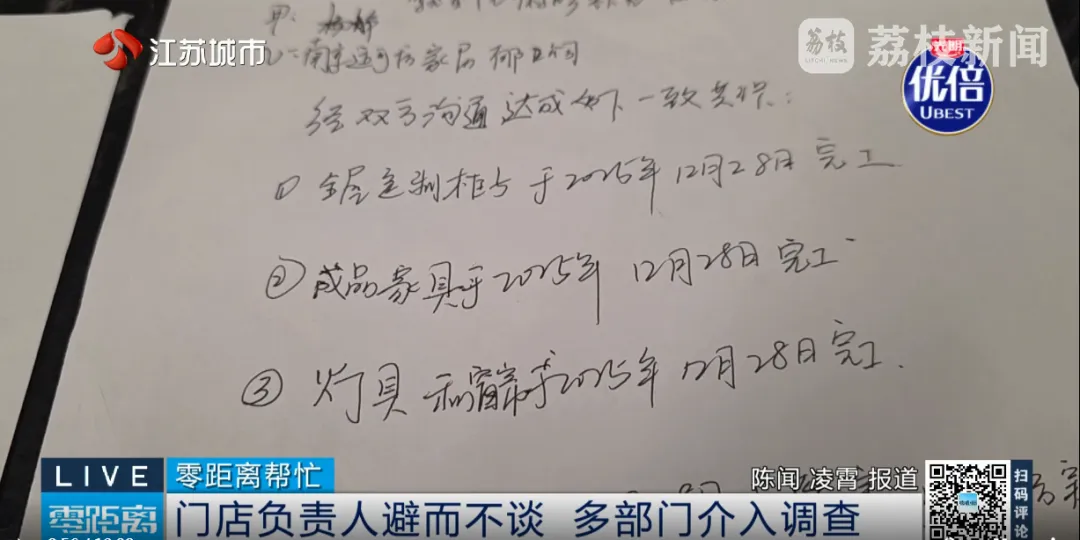 江苏城市
荔枝
LITCHI NEWS
荔枝新闻
光明
优倍
UBEST
甲:
经双方沟通达成如下一致
① 全屋定制柜 于2025年12月28日完工
② 成品家具于2025年12月28日完工
③ 灯具和窗帘于2025年12月28日完工.
LIVE
零距离
零距离帮忙
陈闻 凌霄 报道
门店负责人避而不谈 多部门介入调查
扫码评论